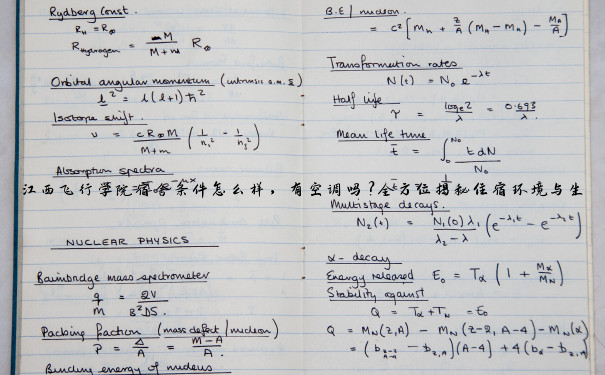 Rydberg Const.
R_H = R_∞
R_Hydrogen = M / (M + m) R_∞
Orbital angular momentum (intrinsic a.m. s)
l² = l(l+1)ħ²
Isotope shift.
ν = c R_∞ M / (M+m) (1/n₁² - 1/n₂²)
Absorption spectra
江西飞行学院宿舍条件怎么样，有空调吗？全方位揭秘住宿环境与生
NUCLEAR PHYSICS
Bainbridge mass spectrometer
q/m = 2V / B²DS.
Packing fraction (mass defect / nucleon)
P = Δ/A = (M-A)/A.
Binding energy of nucleus
B.E / nucleon.
= c² [M_n + Z/A (M_H - M_n) - M_A/A]
Transformation rates
N(t) = N₀ e^{-λt}
Half life
τ = log_e 2 / λ = 0.693 / λ.
Mean life time
t̄ = ∫₀^{N₀} t dN / N₀
Multistage decays.
N₂(t) = N₁(0) λ₁ / (λ₂ - λ₁) (e^{-λ₁t} - e^{-λ₂t})
α - decay
Energy released E₀ = T_α (1 + M_α/M_N)
Stability against
Q = T_α + T_N = E₀
Q = M_N(Z,A) - M_N(Z-2, A-4) - M_N(α)